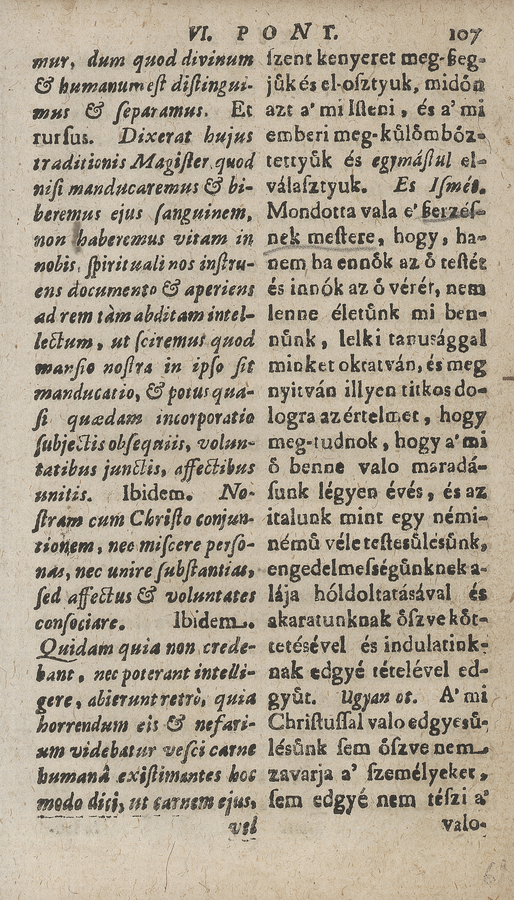 VI. PONT. 107
mur, dum quod divinum
& humanum est distingui-
mus & separamus. Et
rursus. Dixerat hujus
traditionis Magister, quod
nisi manducaremus & bi-
beremus ejus sanguinem,
non haberemus vitam in
nobis, spirituali nos instru-
ens documento & aperiens
ad rem tàm abditam intel-
lectum, ut sciremus quod
mansio nostra in ipso sit
manducatio, & potus qua-
si quædam incorporatio
subjectis obsequiis, volun-
tatibus junctis, affectibus
unitis. Ibidem. No-
stram cum Christo conjun-
tionem, nec miscere perso-
nas, nec unire substantias,
sed affectus & voluntates
consociare. Ibidem.
Quidam quia non crede-
bant, nec poterant intelli-
gere, abierunt retrò, quia
horrendum eis & nefari-
um videbatur vesci carne
humanâ existimantes hoc
modo dici, ut carnem ejus,
vel
szent kenyeret meg-szeg-
jük és el-osztyuk, midőn
azt a' mi Isteni, és a' mi
emberi meg-külömböz-
tettyük és egymástul el-
választyuk. Es Ismét.
Mondotta vala e' szerzés-
nek mestere, hogy, ha-
nem ha ennők az ő testét
és innók az ő vérét, nem
lenne életünk mi ben-
nünk, lelki tanusággal
minket oktatván, és meg
nyitván illyen titkos do-
logra az értelmet, hogy
meg-tudnok, hogy a' mi
ő benne valo maradá-
sunk légyen évés, és az
italunk mint egy némi-
némü véle testesülésünk,
engedelmességünknek a-
lája hóldoltatásával és
akaratunknak öszve köt-
tetésével és indulatink-
nak edgyé tételével ed-
gyüt. Ugyan ot. A' mi
Christussal valo edgyesü-
lésünk sem öszve nem
zavarja a' személyeket,
sem edgyé nem tészi a'
valo-